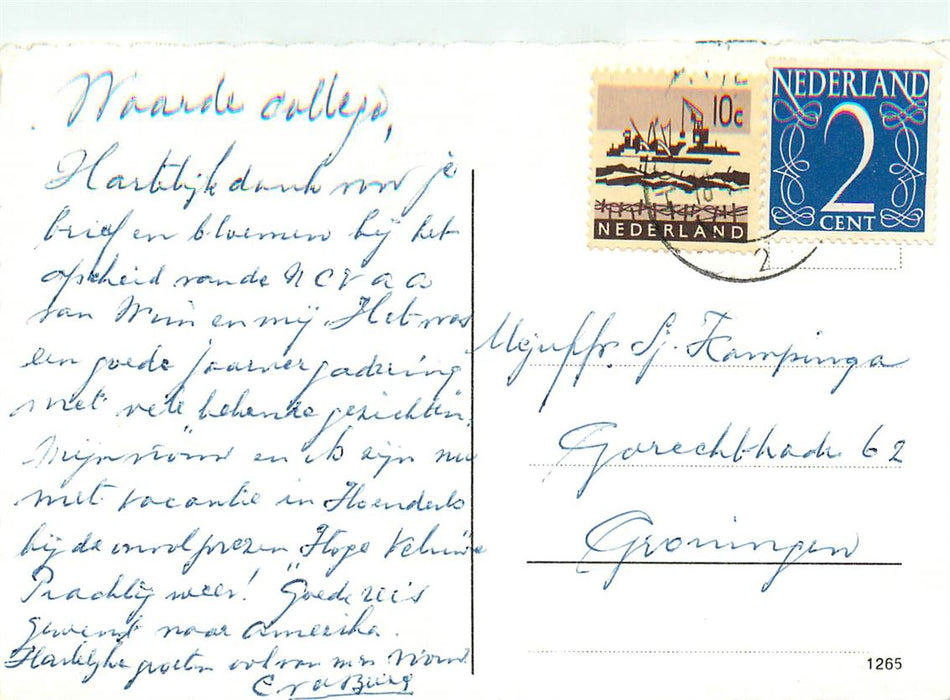 Waarde collega,
Hartelijk dank voor je
brief en bloemen bij het
afscheid van de N C V a a
van Wim en mij. Het was
een goede jaarvergadering
met vele bekende gezichten.
Mijn vrouw en ik zijn nu
met vacantie in Hoenderlo
bij de onvolprezen "Hoge Veluwe"
Prachtig weer! Goede reis
gewenst naar Amerika.
Hartelijke groeten ook van mijn vrouw
C v d Burg
10c
NEDERLAND
NEDERLAND
2
CENT
2
Mejuffr. Sj. Kampinga
62
Groningen
1265